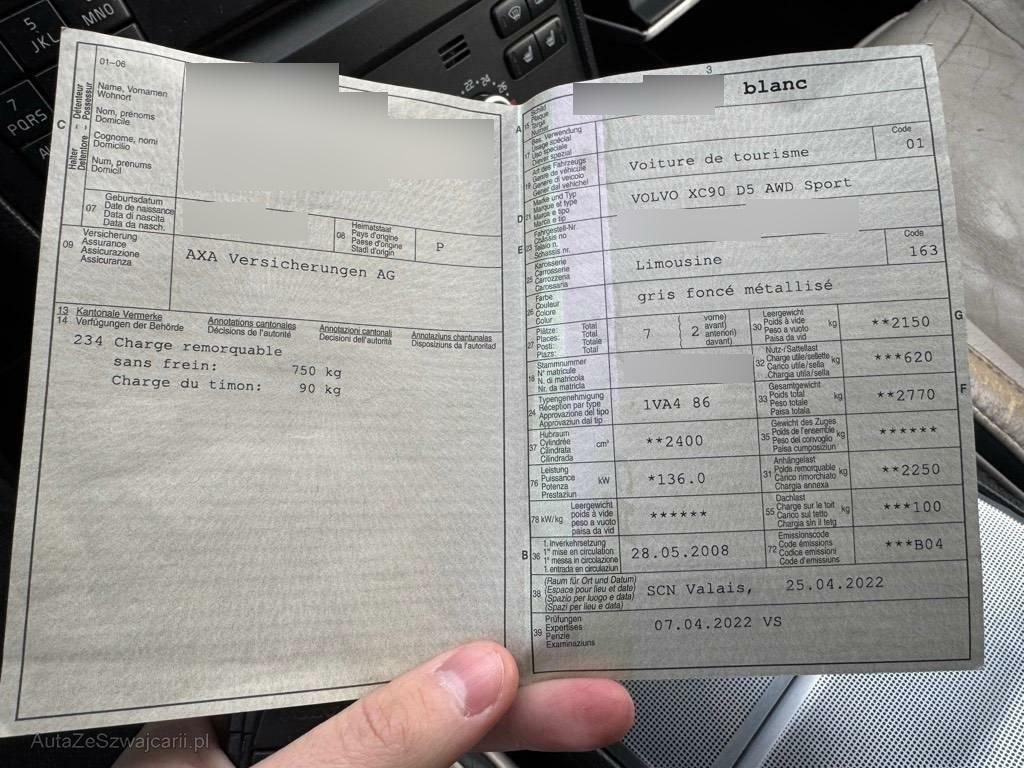 5
JKL
MNO
7
PQRS
22 • 24 • 26
01–06
C
Halter
Detentore
Détenteur
Possessur
Name, Vornamen
Wohnort
Nom, prénoms
Domicile
Cognome, nomi
Domicilio
Num, prenums
Domicil
07
Geburtsdatum
Date de naissance
Data di nascita
Data da nasch.
08
Heimatstaat
Pays d'origine
Paese d'origine
Stadi d'origin
P
09
Versicherung
Assurance
Assicurazione
Assicuranza
AXA Versicherungen AG
13 Kantonale Vermerke
14 Verfügungen der Behörde
Annotations cantonales
Décisions de l'autorité
Annotazioni cantonali
Decisioni dell'autorità
Annotaziuns chantunalas
Disposiziuns da l'autoritad
234 Charge remorquable
sans frein: 750 kg
Charge du timon: 90 kg
3
A
15
Schild
Plaque
Targa
Numer
blanc
17
Bes. Verwendung
Usage spécial
Uso speciale
Diever spezial
19
Art des Fahrzeugs
Genre de véhicule
Genere di veicolo
Gener dal vehichel
Voiture de tourisme
Code
01
D
21
Marke und Typ
Marque et type
Marca e tipo
Marca e tip
VOLVO XC90 D5 AWD Sport
E
23
Fahrgestell-Nr.
Châssis no
Telaio n.
Schassis nr.
25
Karosserie
Carrosserie
Carrozzeria
Carossaria
Limousine
Code
163
26
Farbe
Couleur
Colore
Colur
gris foncé métallisé
27
Plätze: Total
Places: Total
Posti: Totale
Plazs: Total
7
2
vorne)
avant)
anteriori)
davant)
30
Leergewicht
Poids à vide
Peso a vuoto
Paisa da vid
kg
**2150
G
18
Stammnummer
N° matricule
N. di matricola
Nr. da matricla
32
Nutz-/Sattellast
Charge utile/sellette
Carico utile/sella
Chargia utila/sella
kg
***620
24
Typengenehmigung
Réception par type
Approvazione del tipo
Approvaziun dal tip
1VA4 86
33
Gesamtgewicht
Poids total
Peso totale
Paisa totala
kg
**2770
F
37
Hubraum
Cylindrée
Cilindrata
Cilindrada
cm³
**2400
35
Gewicht des Zuges
Poids de l'ensemble
Peso del convoglio
Paisa cumposiziun
kg
******
76
Leistung
Puissance
Potenza
Prestaziun
kW
*136.0
31
Anhängelast
Poids remorquable
Carico rimorchiato
Chargia annexa
kg
**2250
78 kW/kg
Leergewicht
poids à vide
peso a vuoto
paisa da vid
******
55
Dachlast
Charge sur le toit
Carico sul tetto
Chargia sin il tetg
kg
***100
B
36
1. Inverkehrsetzung
1re mise en circulation
1a messa in circolazione
1. entrada en circulaziun
28.05.2008
72
Emissionscode
Code émissions
Codice emissioni
Code d'emissiuns
***B04
38
(Raum für Ort und Datum)
(Espace pour lieu et date)
(Spazio per luogo e data)
(Spazi per lieu e data)
SCN Valais, 25.04.2022
39
Prüfungen
Expertises
Perizie
Examinaziuns
07.04.2022 VS
AutaZeSzwajcarii.pl